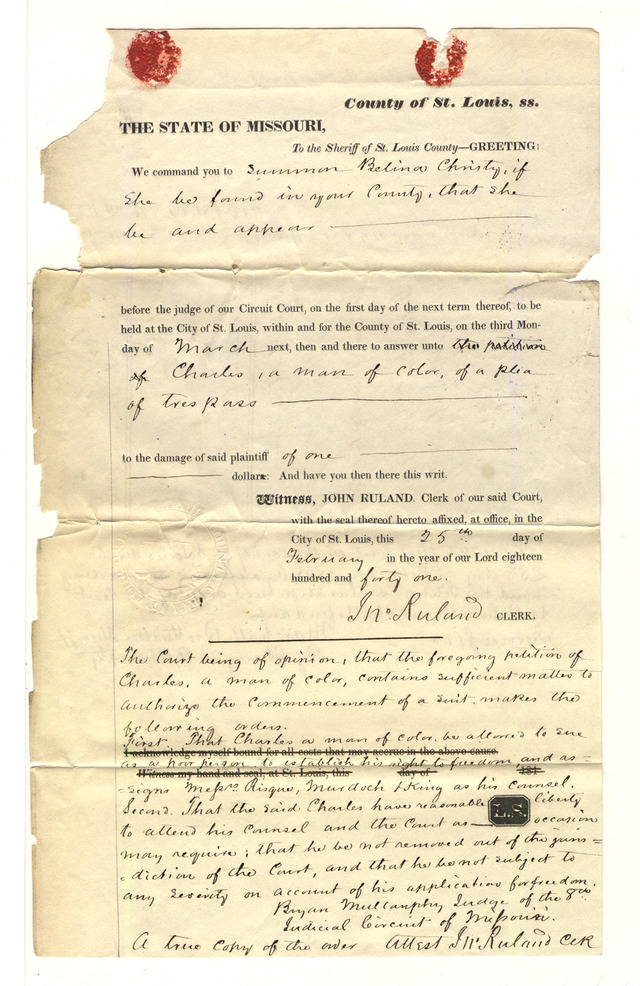 County of St. Louis, ss.
THE STATE OF MISSOURI,
To the Sheriff of St. Louis County—GREETING:
We command you to Summon Belina Christy, if
She be found in your County, that she
be and appear
before the judge of our Circuit Court, on the first day of the next term thereof, to be
held at the City of St. Louis, within and for the County of St. Louis, on the third Mon-
day of March next, then and there to answer unto the petition
of Charles, a man of color, of a plea
of trespass
to the damage of said plaintiff of one
dollars: And have you then there this writ.
Witness, JOHN RULAND. Clerk of our said Court,
with the seal thereof hereto affixed, at office, in the
City of St. Louis, this 25th day of
February in the year of our Lord eighteen
hundred and forty one.
Jno Ruland CLERK.
The Court being of opinion, that the foregoing petition of
Charles, a man of color, contains sufficient matter to
authorize the Commencement of a suit. makes the
following orders.
First. That Charles a man of color be allowed to sue
I acknowledge myself bound for all costs that may accrue in the above cause.
as a poor person to establish his right to freedom, and as=
Witness my hand and seal, at St. Louis, this day of 184
=signs Messrs. Risque, Murdoch & King as his counsel.
Second. That the said Charles have reasonable L.S. liberty
to attend his counsel and the Court as occasion
may require; that he be not removed out of the juris=
=diction of the Court, and that he be not subject to
any severity on account of his application for freedom.
Bryan Mullanphy Judge of the 8th
Judicial Circuit of Missouri.
A true Copy of the order Attest Jno Ruland Clk